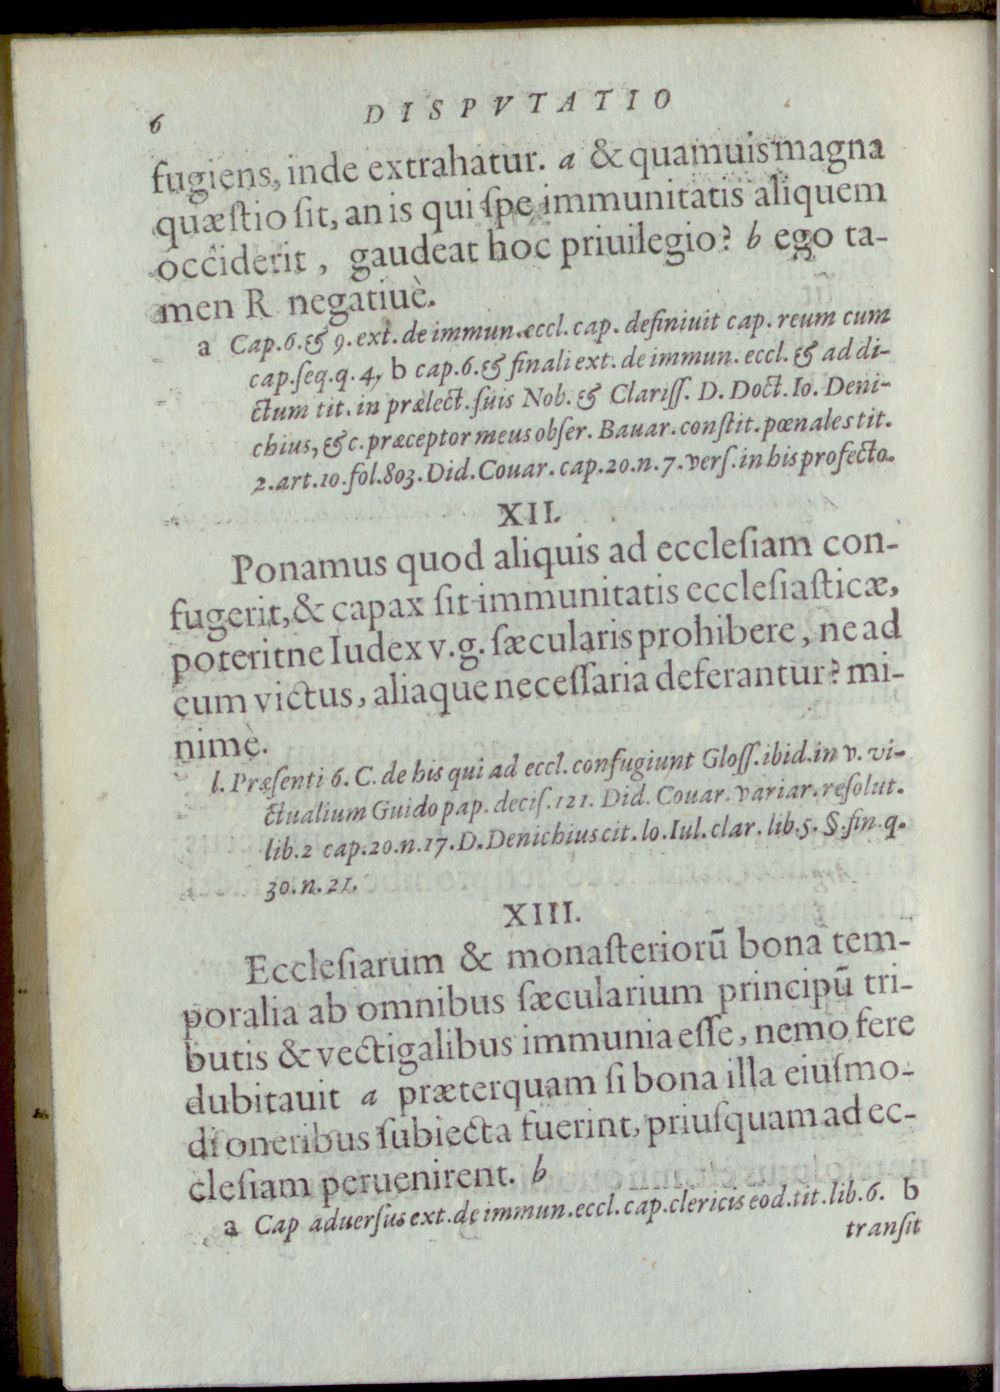 6 DISPVTATIO
fugiens, inde extrahatur. a & quamuis magna
quæſtio ſit, an is qui ſpe immunitatis aliquem
occiderit, gaudeat hoc priuilegio? b ego ta-
men R negatiuè.
a Cap. 6. & 9. ext. de immun. eccl. cap. definiuit cap. reum cum
cap. ſeq. q. 4, b cap. 6. & finali ext. de immun. eccl. & ad di-
ctum tit. in prælect. ſuis Nob. & Clariſſ. D. Doct. Io. Deni-
chius, & c. præceptor meus obſer. Bauar. conſtit. pœnales tit.
2. art. 10. fol. 803. Did. Couar. cap. 20. n. 7. verſ. in his profecto.
XII.
Ponamus quod aliquis ad eccleſiam con-
fugerit, & capax ſit immunitatis eccleſiaſticæ,
poteritne Iudex v.g. ſæcularis prohibere, ne ad
eum victus, aliaque neceſſaria deferantur? mi-
nimè.
l. Præſenti 6. C. de his qui ad eccl. confugiunt Gloſſ. ibid. in v. vi-
ctualium Guido pap. deciſ. 121. Did. Couar. variar. reſolut.
lib. 2 cap. 20. n. 17. D. Denichius cit. lo. Iul. clar. lib. 5. §. fin. q.
30. n. 21.
XIII.
Eccleſiarum & monaſteriorũ bona tem-
poralia ab omnibus ſæcularium principũ tri-
butis & vectigalibus immunia eſſe, nemo fere
dubitauit a præterquam ſi bona illa eiuſmo-
di oneribus ſubiecta fuerint, priuſquam ad ec-
cleſiam peruenirent. b
a Cap aduerſus ext. de immun. eccl. cap. clericis eod. tit. lib. 6. b
tranſit